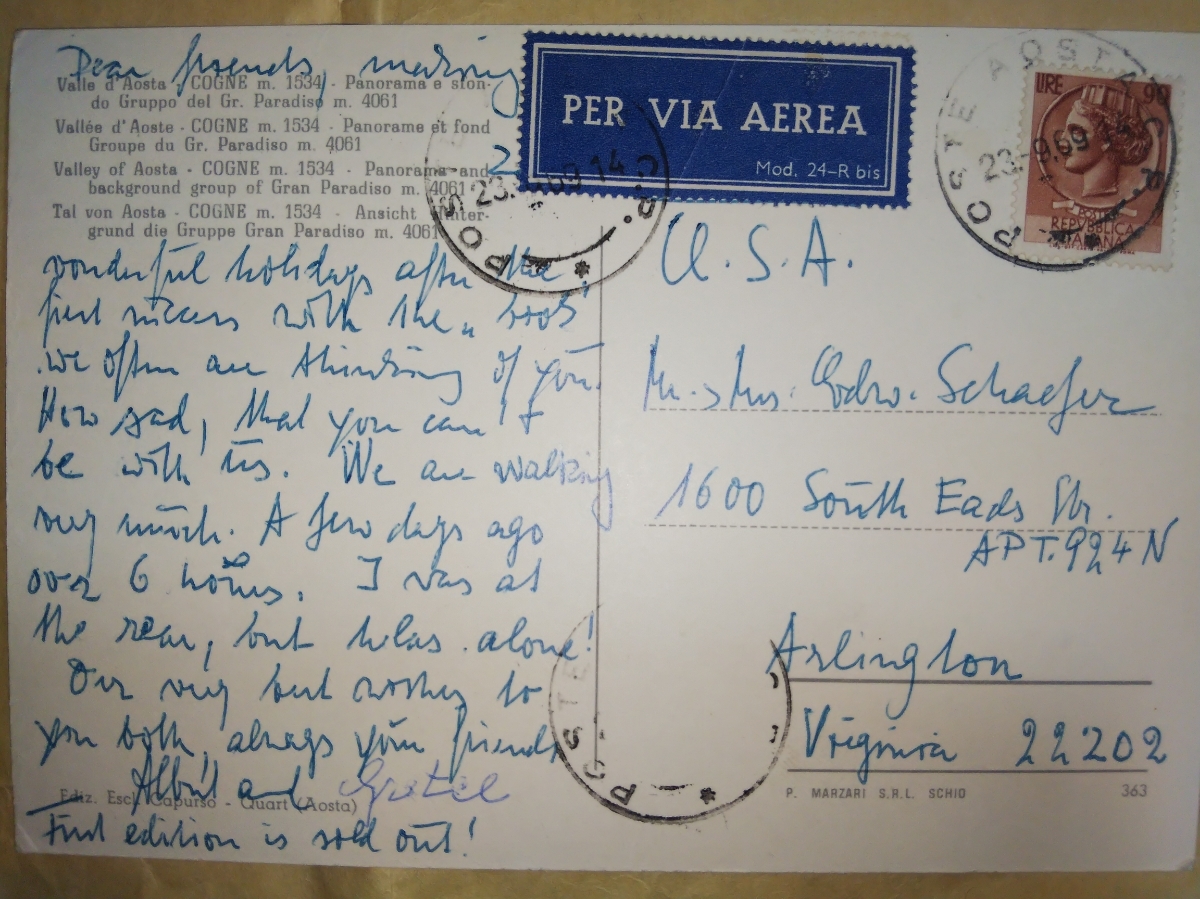 Dear friends, making
Valle d'Aosta - COGNE m. 1534 - Panorama e sfon-
do Gruppo del Gr. Paradiso m. 4061
Vallée d'Aoste - COGNE m. 1534 - Panorame et fond
Groupe du Gr. Paradiso m. 4061
Valley of Aosta - COGNE m. 1534 - Panorama and
background group of Gran Paradiso m. 4061
Tal von Aosta - COGNE m. 1534 - Ansicht Hinter-
grund die Gruppe Gran Paradiso m. 4061
wonderful holidays after the
first success with the „book"
we often are thinking of you.
How sad, that you can't
be with us. We are walking
very much. A few days ago
over 6 hours. I was at
the rear, but alone!
Our very best wishes to
you both, always your friends
Albert and Gretel
Ediz. Escl. Capurso - Quart (Aosta)
First edition is sold out!
PER VIA AEREA
Mod. 24-R bis
POSTE AOSTA C.P.
23-9.69
LIRE 90
POSTE
REPVBBLICA
ITALIANA
U.S.A.
Mr. Mrs. Edw. Schaefer
1600 South Eads Str.
APT. 924 N
Arlington
Virginia 22202
P. MARZARI S.R.L. SCHIO
363
POSTE